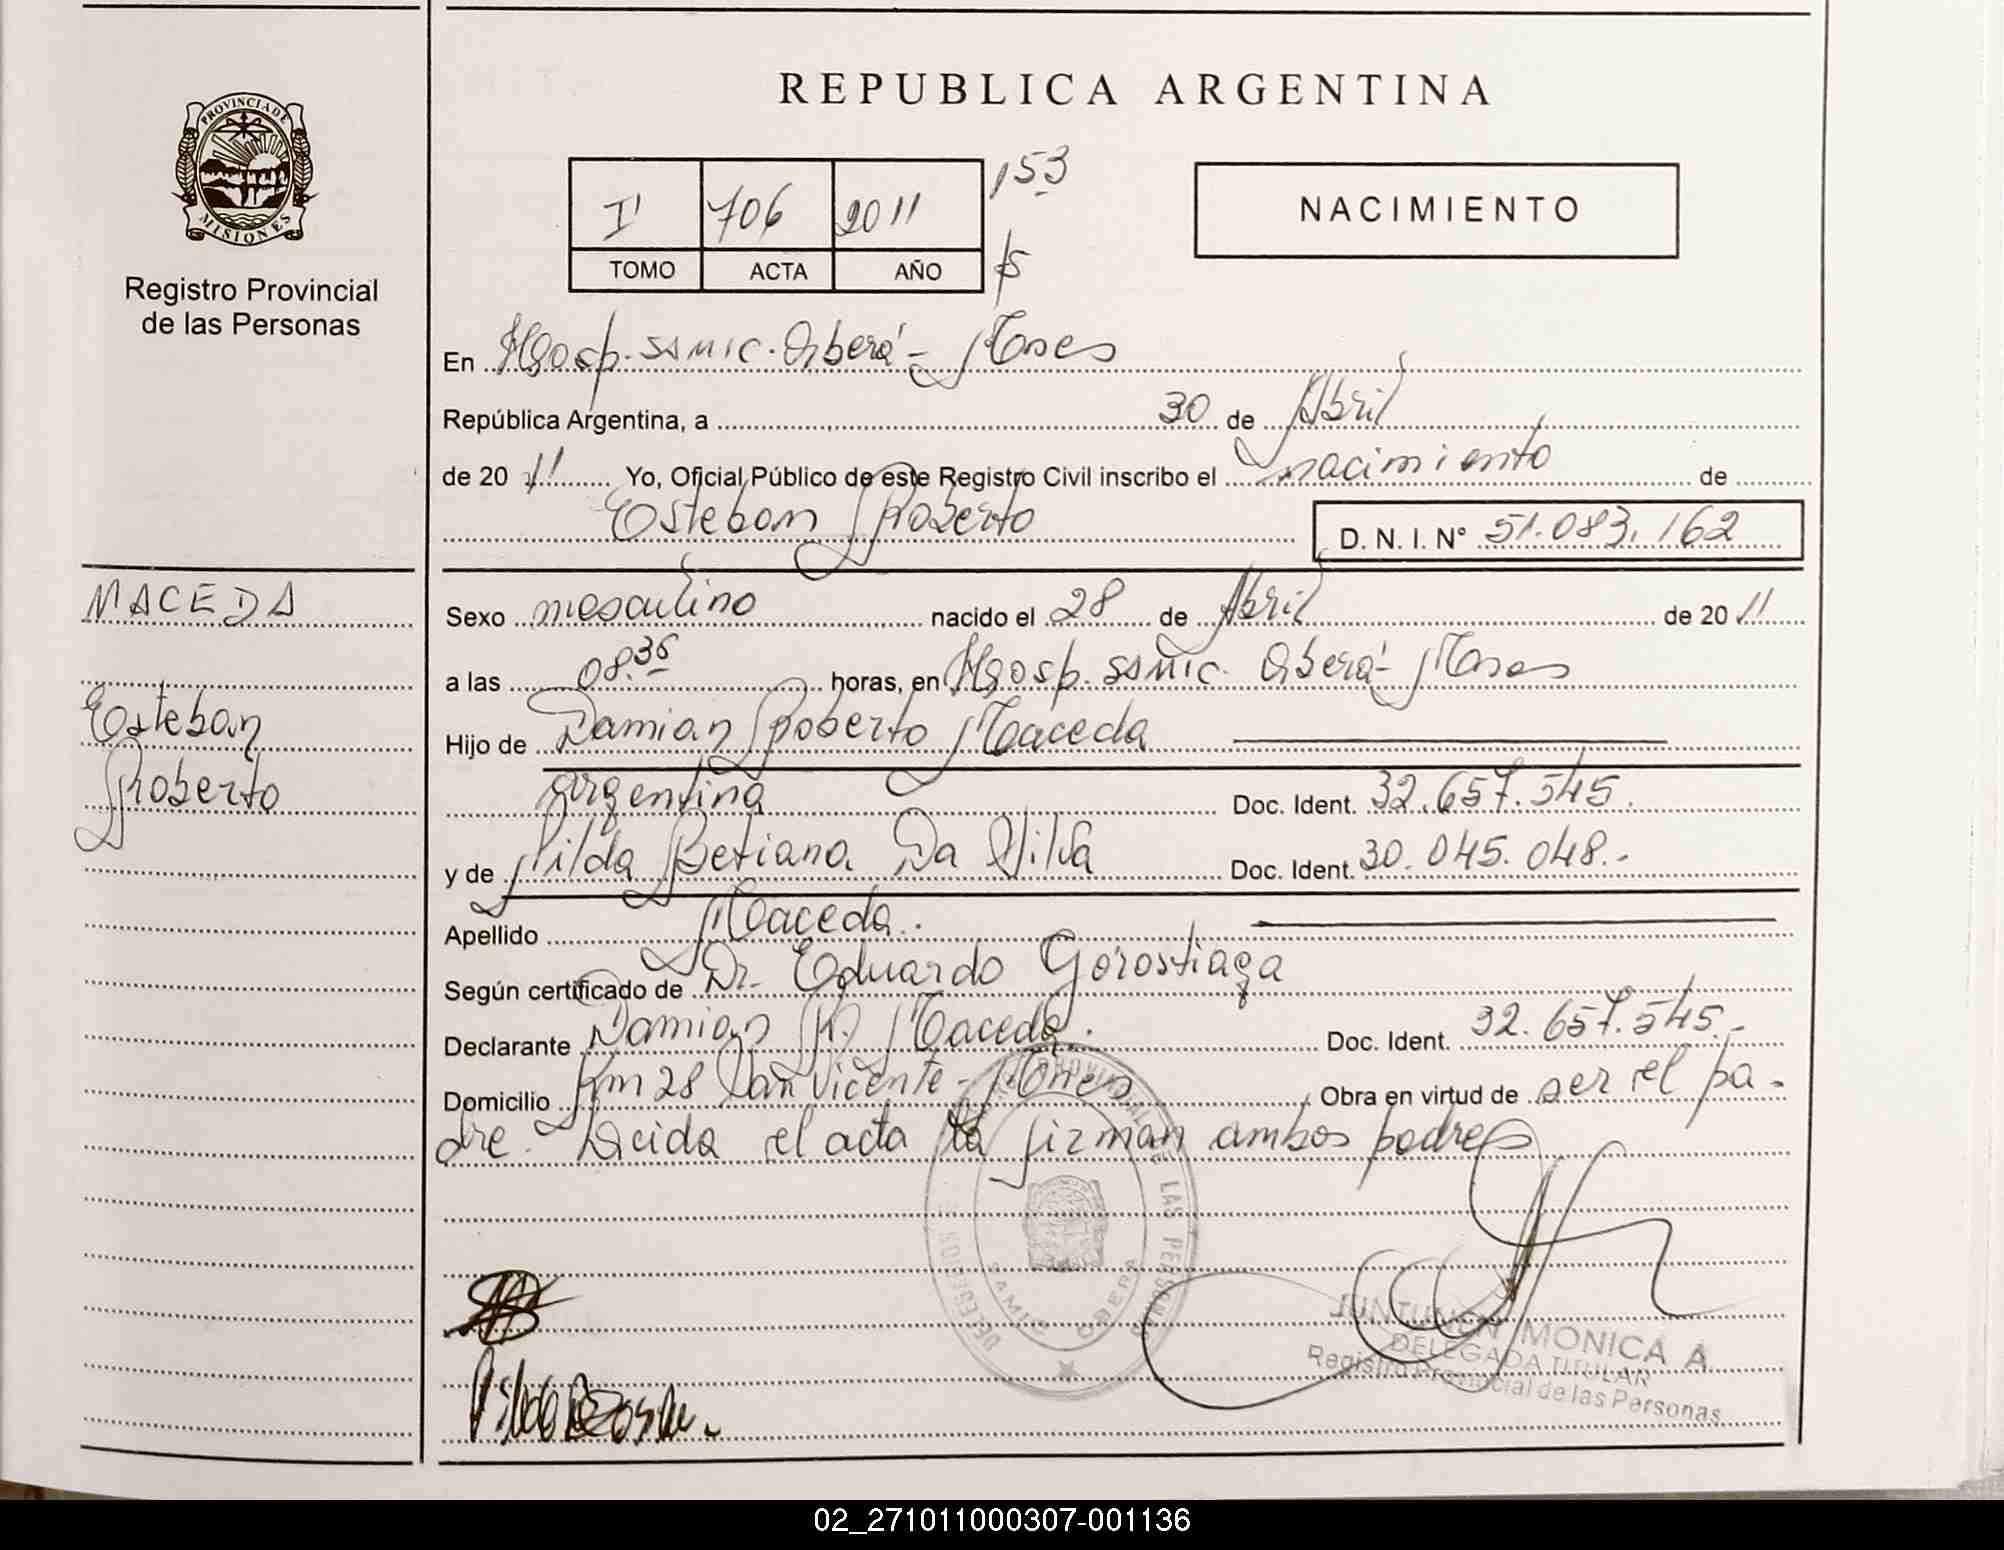 REPUBLICA ARGENTINA
PROVINCIA DE
MISIONES
Registro Provincial
de las Personas
I 706 2011 153
TOMO ACTA AÑO
NACIMIENTO
En Hosp. SAMIC. Oberá - Mnes
República Argentina, a 30 de Abril
de 20 11 Yo, Oficial Público de este Registro Civil inscribo el nacimiento de
Esteban Roberto D. N. I. N° 51.083.162
MACEDA
Esteban
Roberto
Sexo masculino nacido el 28 de Abril de 20 11
a las 08.36 horas, en Hosp. SAMIC. Oberá - Mnes
Hijo de Damian Roberto Maceda
Argentina Doc. Ident. 32.657.545.
y de Gilda Betiana Da Silva Doc. Ident. 30.045.048.-
Apellido Maceda.
Según certificado de Dr. Eduardo Gorostiaga
Declarante Damian R. Maceda. Doc. Ident. 32.657.545.-
Domicilio Km 28 San Vicente - Mnes Obra en virtud de ser el pa-
dre. Leida el acta la firman ambos padres
PROVINCIAL DE LAS PERSONAS
SAMIC OBERA
JUNTUNEN MONICA A
DELEGADA TITULAR
Registro Provincial de las Personas
02_271011000307-001136